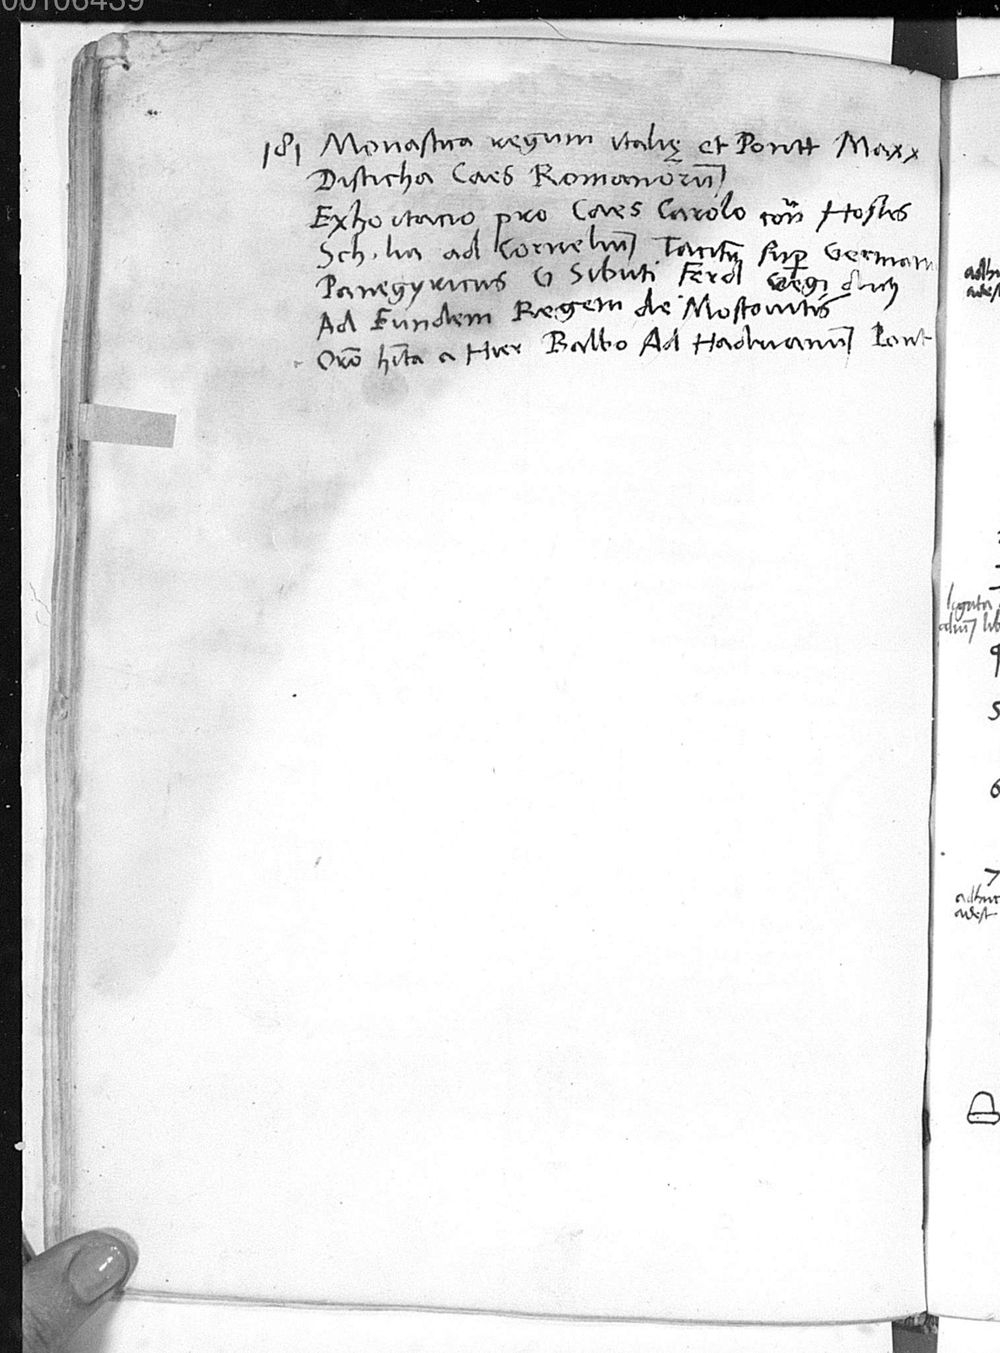 00106439
181 Monasticha regum italię et Pontt Maxx
Disticha Caes Romanorū
Exhortatio pro Caes Carolo coñ Hostes
Scholia ad Cornelium Tacitū sup German
Panegyricus G Sibuti Ferd Regi dictus
Ad Eundem Regem de Moscovitis
Orō hīta a Hier Balbo Ad Hadrianū Pont
adhuc
adest
legata
5
6
7
adhuc
adest